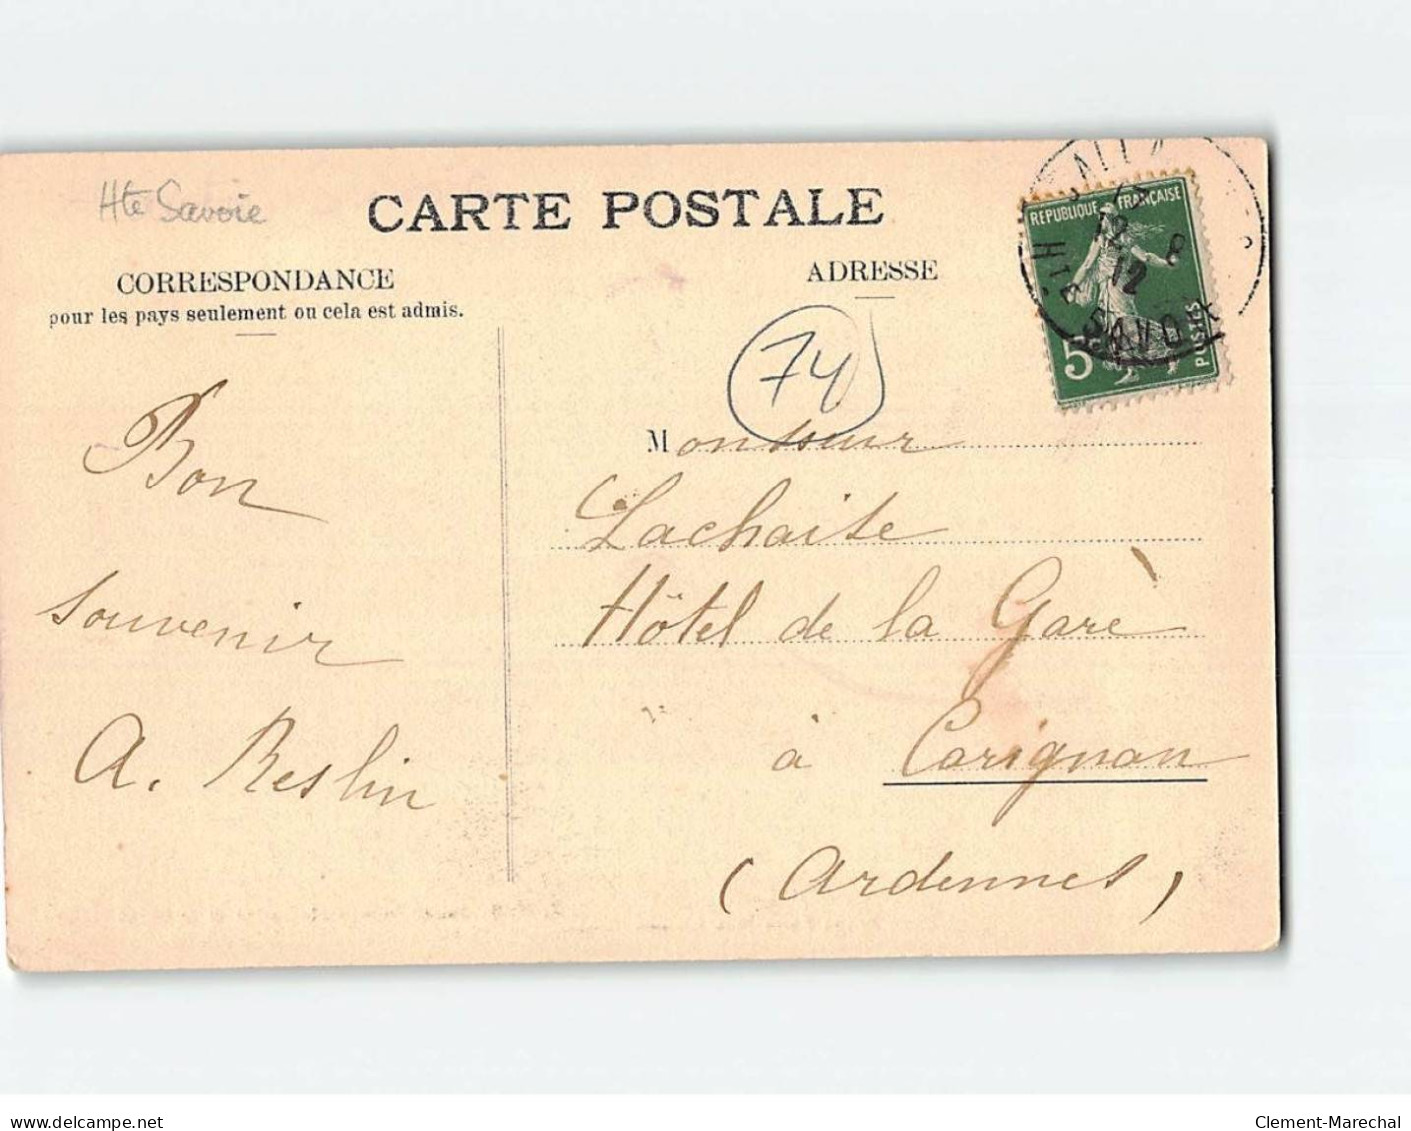 Hte Savoie
CARTE POSTALE
CORRESPONDANCE
pour les pays seulement ou cela est admis.
ADRESSE
REPUBLIQUE FRANÇAISE
5c
POSTES
SALLA
12 8
12
HTE SAVOIE
74
Bon
souvenir
A. Reslin
Monsieur
Lachaite
Hôtel de la Garè
à Carignan
(Ardennes)
www.delcampe.net
Clement-Marechal